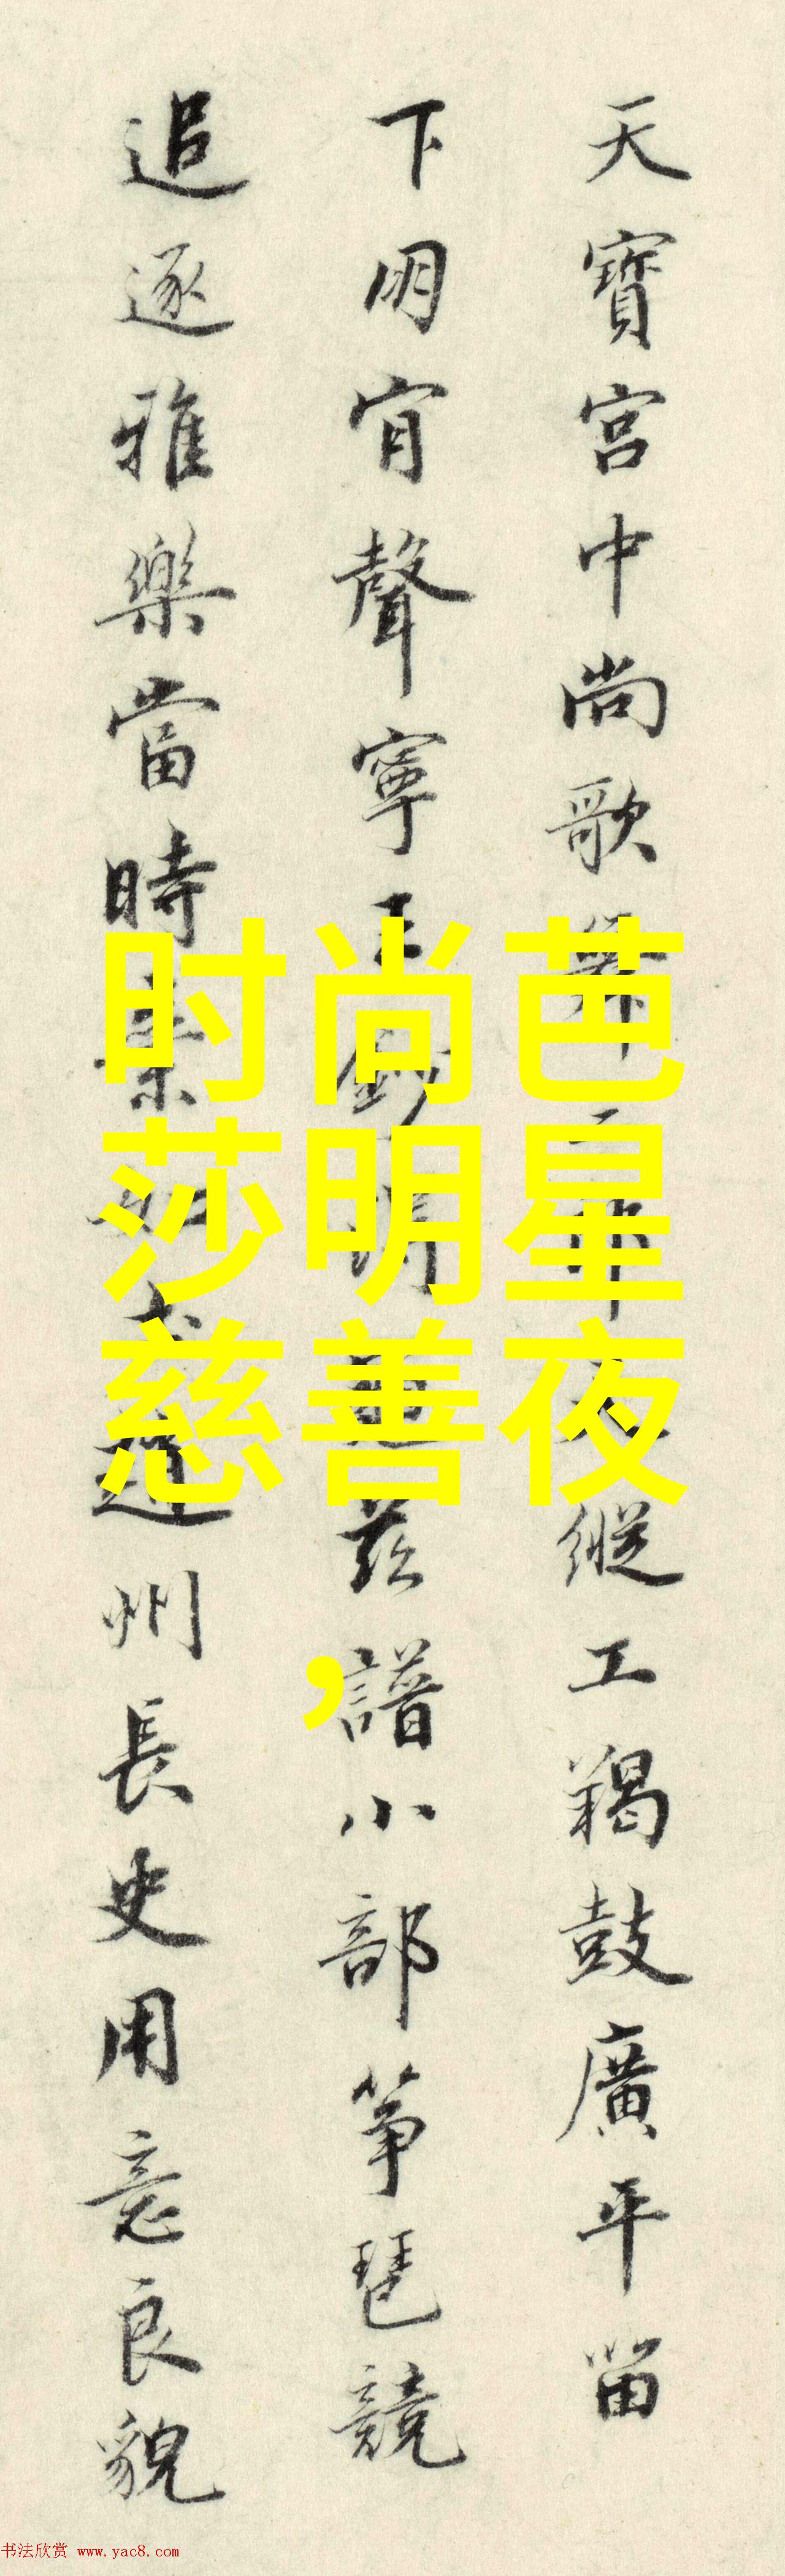 天寶宮中尚歌舞
縱工羯鼓廣平留
下明宵聲寧王
茲譜小部箏琶競
追逐雅樂當時
州長史用意良貌
时尚芭
莎明星
慈善夜
，
书法欣赏 www.yac8.com